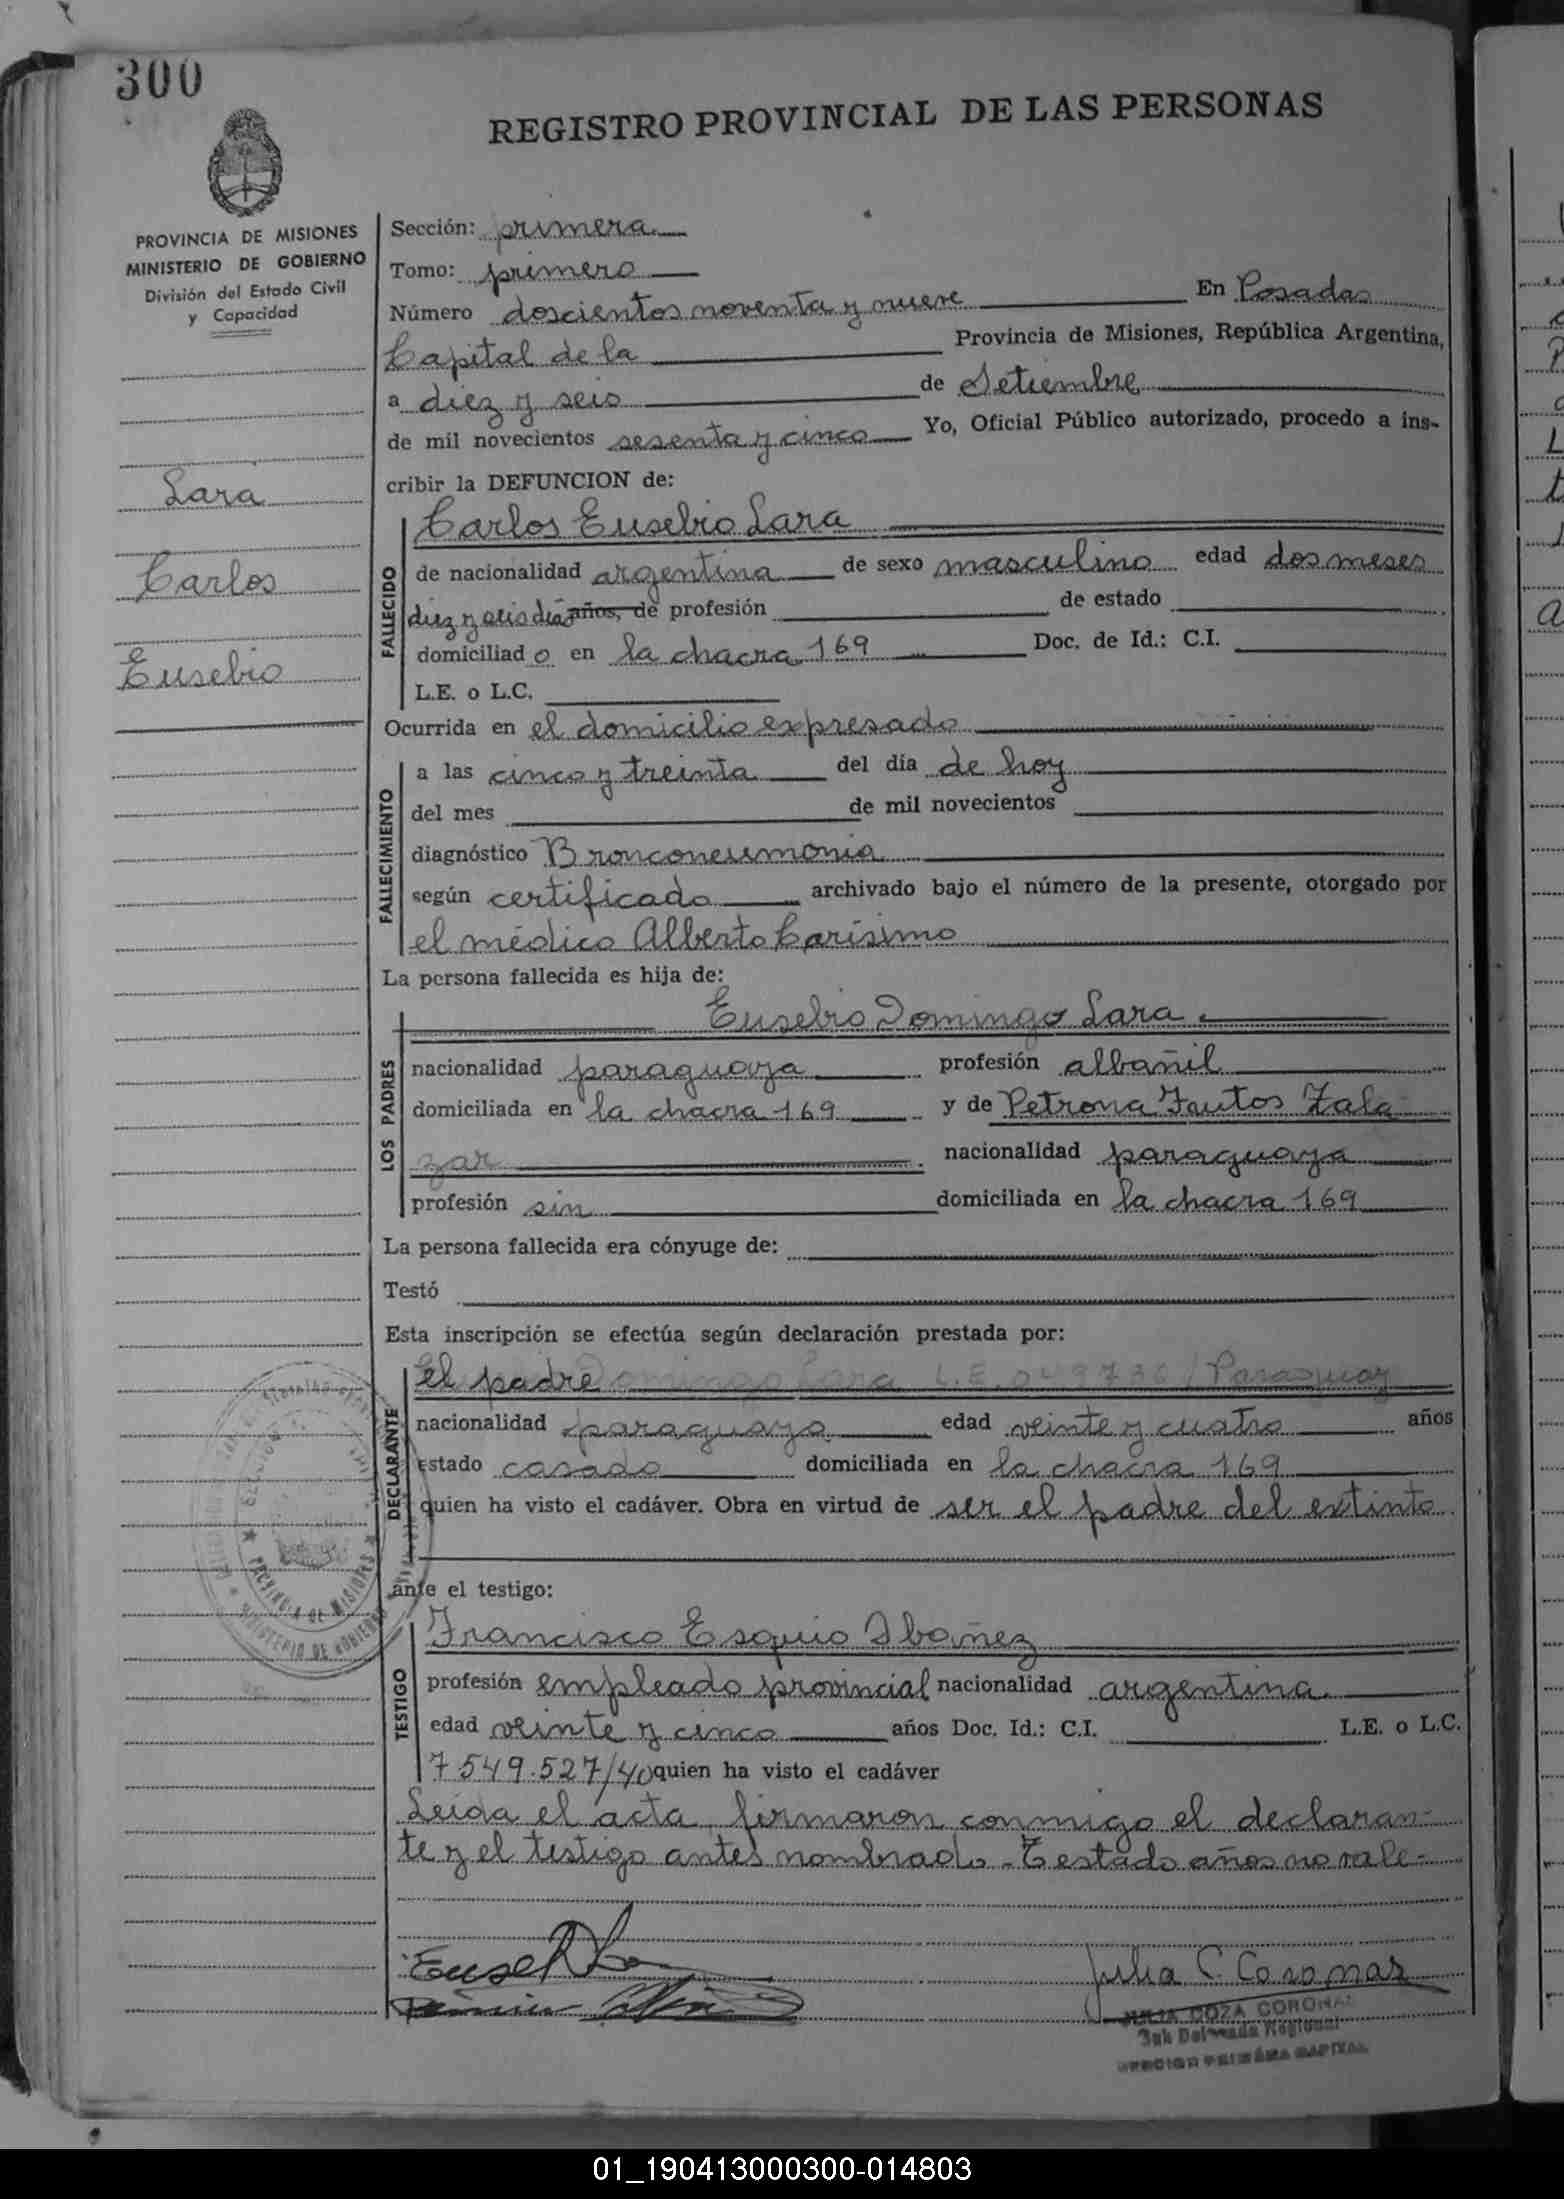 300
REGISTRO PROVINCIAL DE LAS PERSONAS
PROVINCIA DE MISIONES
MINISTERIO DE GOBIERNO
División del Estado Civil
y Capacidad
Lara
Carlos
Eusebio
Sección: primera
Tomo: primero
Número doscientos noventa y nueve En Posadas
Capital de la Provincia de Misiones, República Argentina,
a diez y seis de Setiembre
de mil novecientos sesenta y cinco Yo, Oficial Público autorizado, procedo a ins-
cribir la DEFUNCION de:
FALLECIDO
Carlos Eusebio Lara
de nacionalidad argentina de sexo masculino edad dos meses
diez y seis días años, de profesión de estado
domiciliado en la chacra 169 Doc. de Id.: C.I.
L.E. o L.C.
Ocurrida en el domicilio expresado
FALLECIMIENTO
a las cinco y treinta del día de hoy
del mes de mil novecientos
diagnóstico Bronconeumonia
según certificado archivado bajo el número de la presente, otorgado por
el médico Alberto Carísimo
La persona fallecida es hija de:
LOS PADRES
Eusebio Domingo Lara
nacionalidad paraguaya profesión albañil
domiciliada en la chacra 169 y de Petrona Zala
zar nacionalidad paraguaya
profesión sin domiciliada en la chacra 169
La persona fallecida era cónyuge de:
Testó
Esta inscripción se efectúa según declaración prestada por:
DECLARANTE
el padre
nacionalidad paraguaya edad veinte y cuatro años
estado casado domiciliada en la chacra 169
quien ha visto el cadáver. Obra en virtud de ser el padre del extinto
ante el testigo:
TESTIGO
Francisco Esquio Ibañez
profesión empleado provincial nacionalidad argentina
edad veinte y cinco años Doc. Id.: C.I. L.E. o L.C.
7549.527/40 quien ha visto el cadáver
Leída el acta, firmaron conmigo el declaran-
te y el testigo antes nombrado. Testado años no vale-
Julia C Coronas
JULIA COZA CORONAS
PROVINCIA DE MISIONES
MINISTERIO DE GOBIERNO
01_190413000300-014803